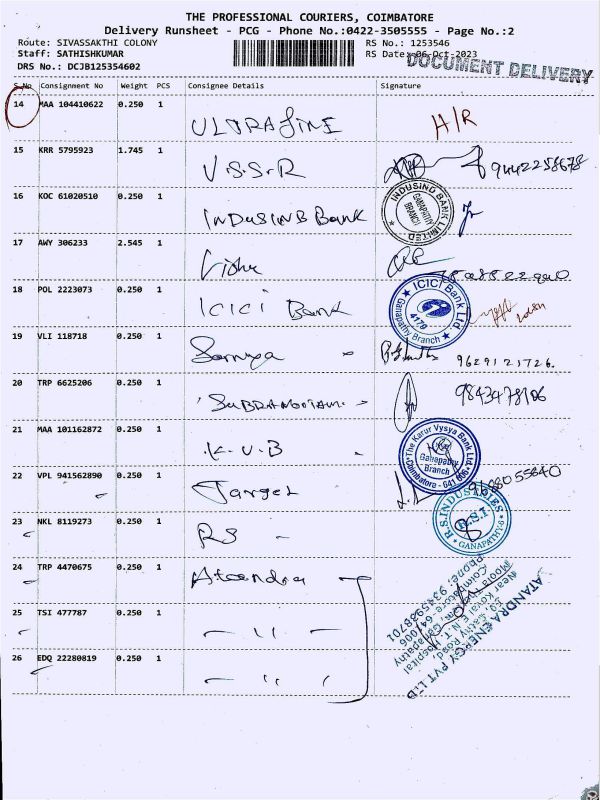 THE PROFESSIONAL COURIERS, COIMBATORE
Delivery Runsheet - PCG - Phone No.:0422-3505555 - Page No.:2
Route: SIVASSAKTHI COLONY RS No.: 1253546
Staff: SATHISHKUMAR RS Date: 06-Oct-2023
DRS No.: DCJB125354602 DOCUMENT DELIVERY
S.No Consignment No Weight PCS Consignee Details Signature
14 MAA 104410622 0.250 1 H/R
15 KRR 5795923 1.745 1 V.S.S.R 9442258678
16 KOC 61020510 0.250 1 INDUSIND Bank
INDUSIND BANK LIMITED GANAPATHY BRANCH
17 AWY 306233 2.545 1
18 POL 2223073 0.250 1 ICICI Bank
ICICI Bank Ltd. 4179 Ganapathy Branch
19 VLI 118718 0.250 1 9629121726.
20 TRP 6625206 0.250 1 9843478106
21 MAA 101162872 0.250 1 K.V.B
The Karur Vysya Bank Ltd. Ganapathy Branch Coimbatore - 641 006
22 VPL 941562890 0.250 1 Target 9688055840
23 NKL 8119273 0.250 1 RS
R.S.INDUSTRIES R.S.I GANAPATHY-6
24 TRP 4470675 0.250 1 Atandra
25 TSI 477787 0.250 1 - 11 -
26 EDQ 22280819 0.250 1 - 11 -
ATANDRA ENERGY PVT LTD
Near Kovai E.N.T. Hospital
Coimbatore-641006